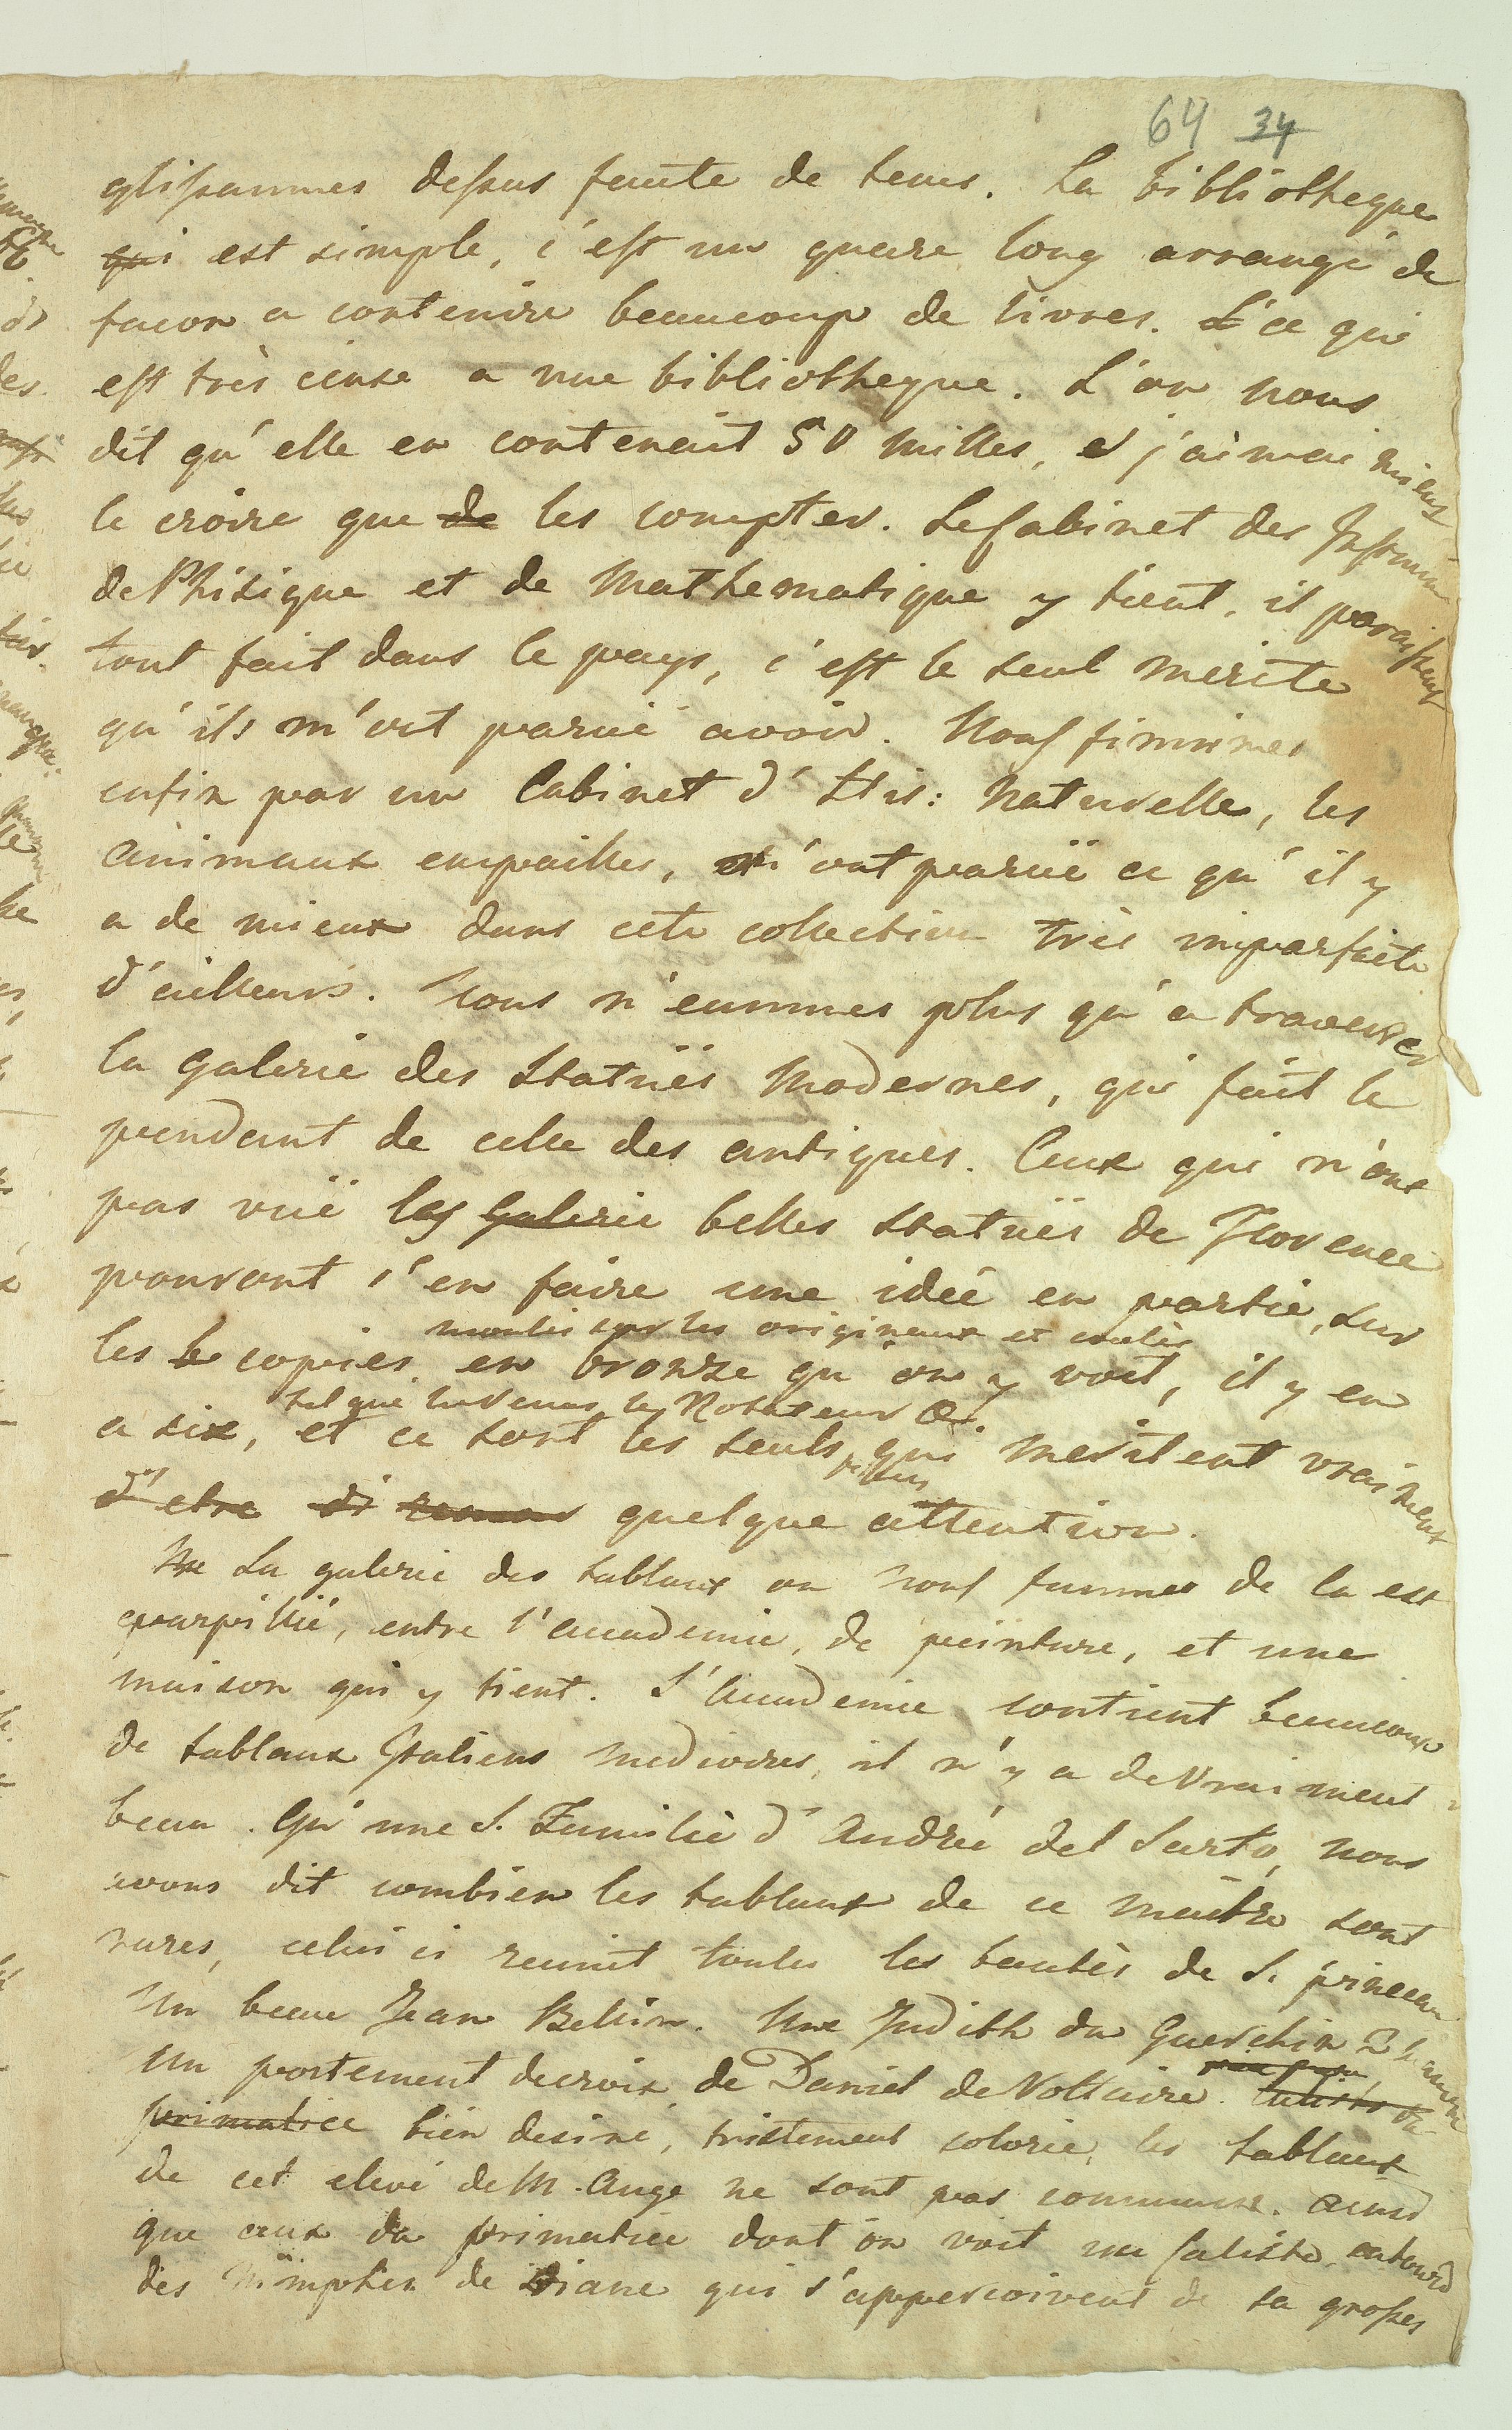 64 34
glissames dessus faute de tems. La bibliotheque
qui est simple, c'est un quaré long arrangé de
facon a contenire beaucoup de livres. L'ce qui
est très aisée a une bibliotheque. L'on nous
dit qu'elle en contenait 50 milles, et j'aimai mieux
le croire que de les compter. Le Cabinet des Instrum
de Phisique et de Mathematique y tient, il paraissent
tout fait dans le pays, c'est le seul merite
qu'ils m'ont parue avoir. Nous finimes
enfin par un Cabinet d'His: Naturelle, les
animaux empailles, m'ont paruë ce qu'il y
a de mieux dans cete collection très imparfaite
d'ailleurs. Nous n'eummes plus qu'a traverser
la galerie des Statuës Modernes, qui fait le
pendant de celle des antiques. Ceux qui n'ont
pas vuë les Galerie belles statuës de Florence
pouront s'en faire une idée en partie, sur
moulés sur les originaux et coulés
les be copies en bronze qu'on y voit, il y en
tel que la Venus, le Rotateur &.
a six, et ce sont les seuls qui meritent vraiment
d'etre di quelque attention.
Me La galerie des tablaux ou nous fummes de la est
eparpillié, entre l'academie, de peinture, et une
maison qui y tient. L'Academie contient beaucoup
de tablaux Italiens mediocres, il n'y a de vraiment
beau. Qu'une S. Famille d'André del Sarto, nous
avons dit combien les tablaux de ce maitre sont
rares, celui ci reunit toutes les beautés de S. pinceau
Un beau Jean Bellin. Une Judith du Guerchin
Un portement de croix de Daniel de Voltaire. Calisto du
primatice bien desiné, tristement colorié, les tablaux
de cet elevé de M. Ange ne sont pas communs. ainsi
que ceux du primatice dont on voit une Calisto, entouré
des Nimphes de Diane qui s'appercoivent de sa grosses